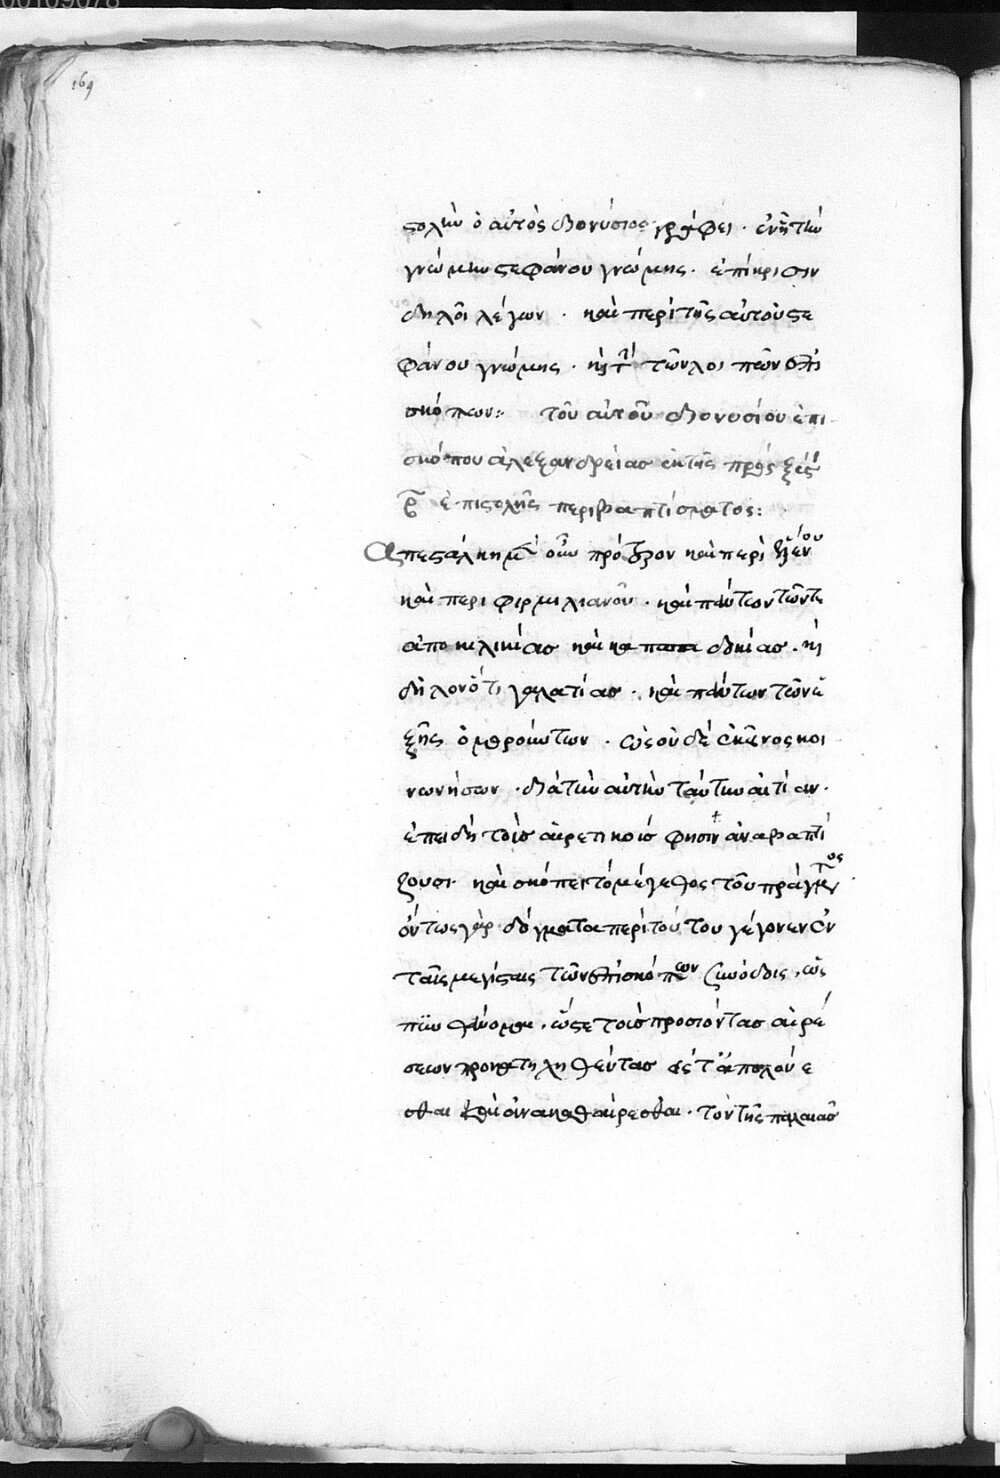 00109078
169
στολὴν ὁ αὐτὸς διονύσιος γράφει · ἐν ᾗ τὴν
γνώμην στεφάνου γνώμης · ἐπίκρισιν
δηλοῖ λέγων · καὶ περὶ τῆς αὐτοῦ στε
φάνου γνώμης · κ τῶν λοιπῶν ἐπι
σκόπων: τοῦ αὐτοῦ διονυσίου ἐπι
σκόπου ἀλεξανδρείας ἐκ τῆς πρὸς
ἐπιστολῆς περὶ βαπτίσματος:
Απεστάλκει μὲν οὖν πρότερον καὶ περὶ ἑλένου
καὶ περι φιρμιλιανοῦ · καὶ πάντων τῶν τε
ἀπο κιλικίας καὶ καππα δοκίας · κ
δηλονότι γαλατίας · καὶ πάντων τῶν ἑ
ξῆς ὁμορούντων · ὡς οὐδὲ ἐκείνοις κοι
νωνήσων · διὰ τὴν αὐτὴν ταύτην αἰτίαν ·
ἐπειδὴ τοὺς αἱρετικοὺς φησιν ἀναβαπτί
ζουσι · καὶ σκόπει τὸ μέγεθος τοῦ πράγματος
ὄντως γὰρ δόγματα περὶ τούτου γέγονεν ἐν
ταῖς μεγίσταις τῶν ἐπισκόπων συνόδοις · ὡς
πυνθάνομαι · ὥστε τοὺς προσιόντας αἱρέ
σεων προκατηχηθέντας εἶτα ἀπολούε
σθαι καὶ ἀνακαθαίρεσθαι · τὸν τῆς παλαιᾶς